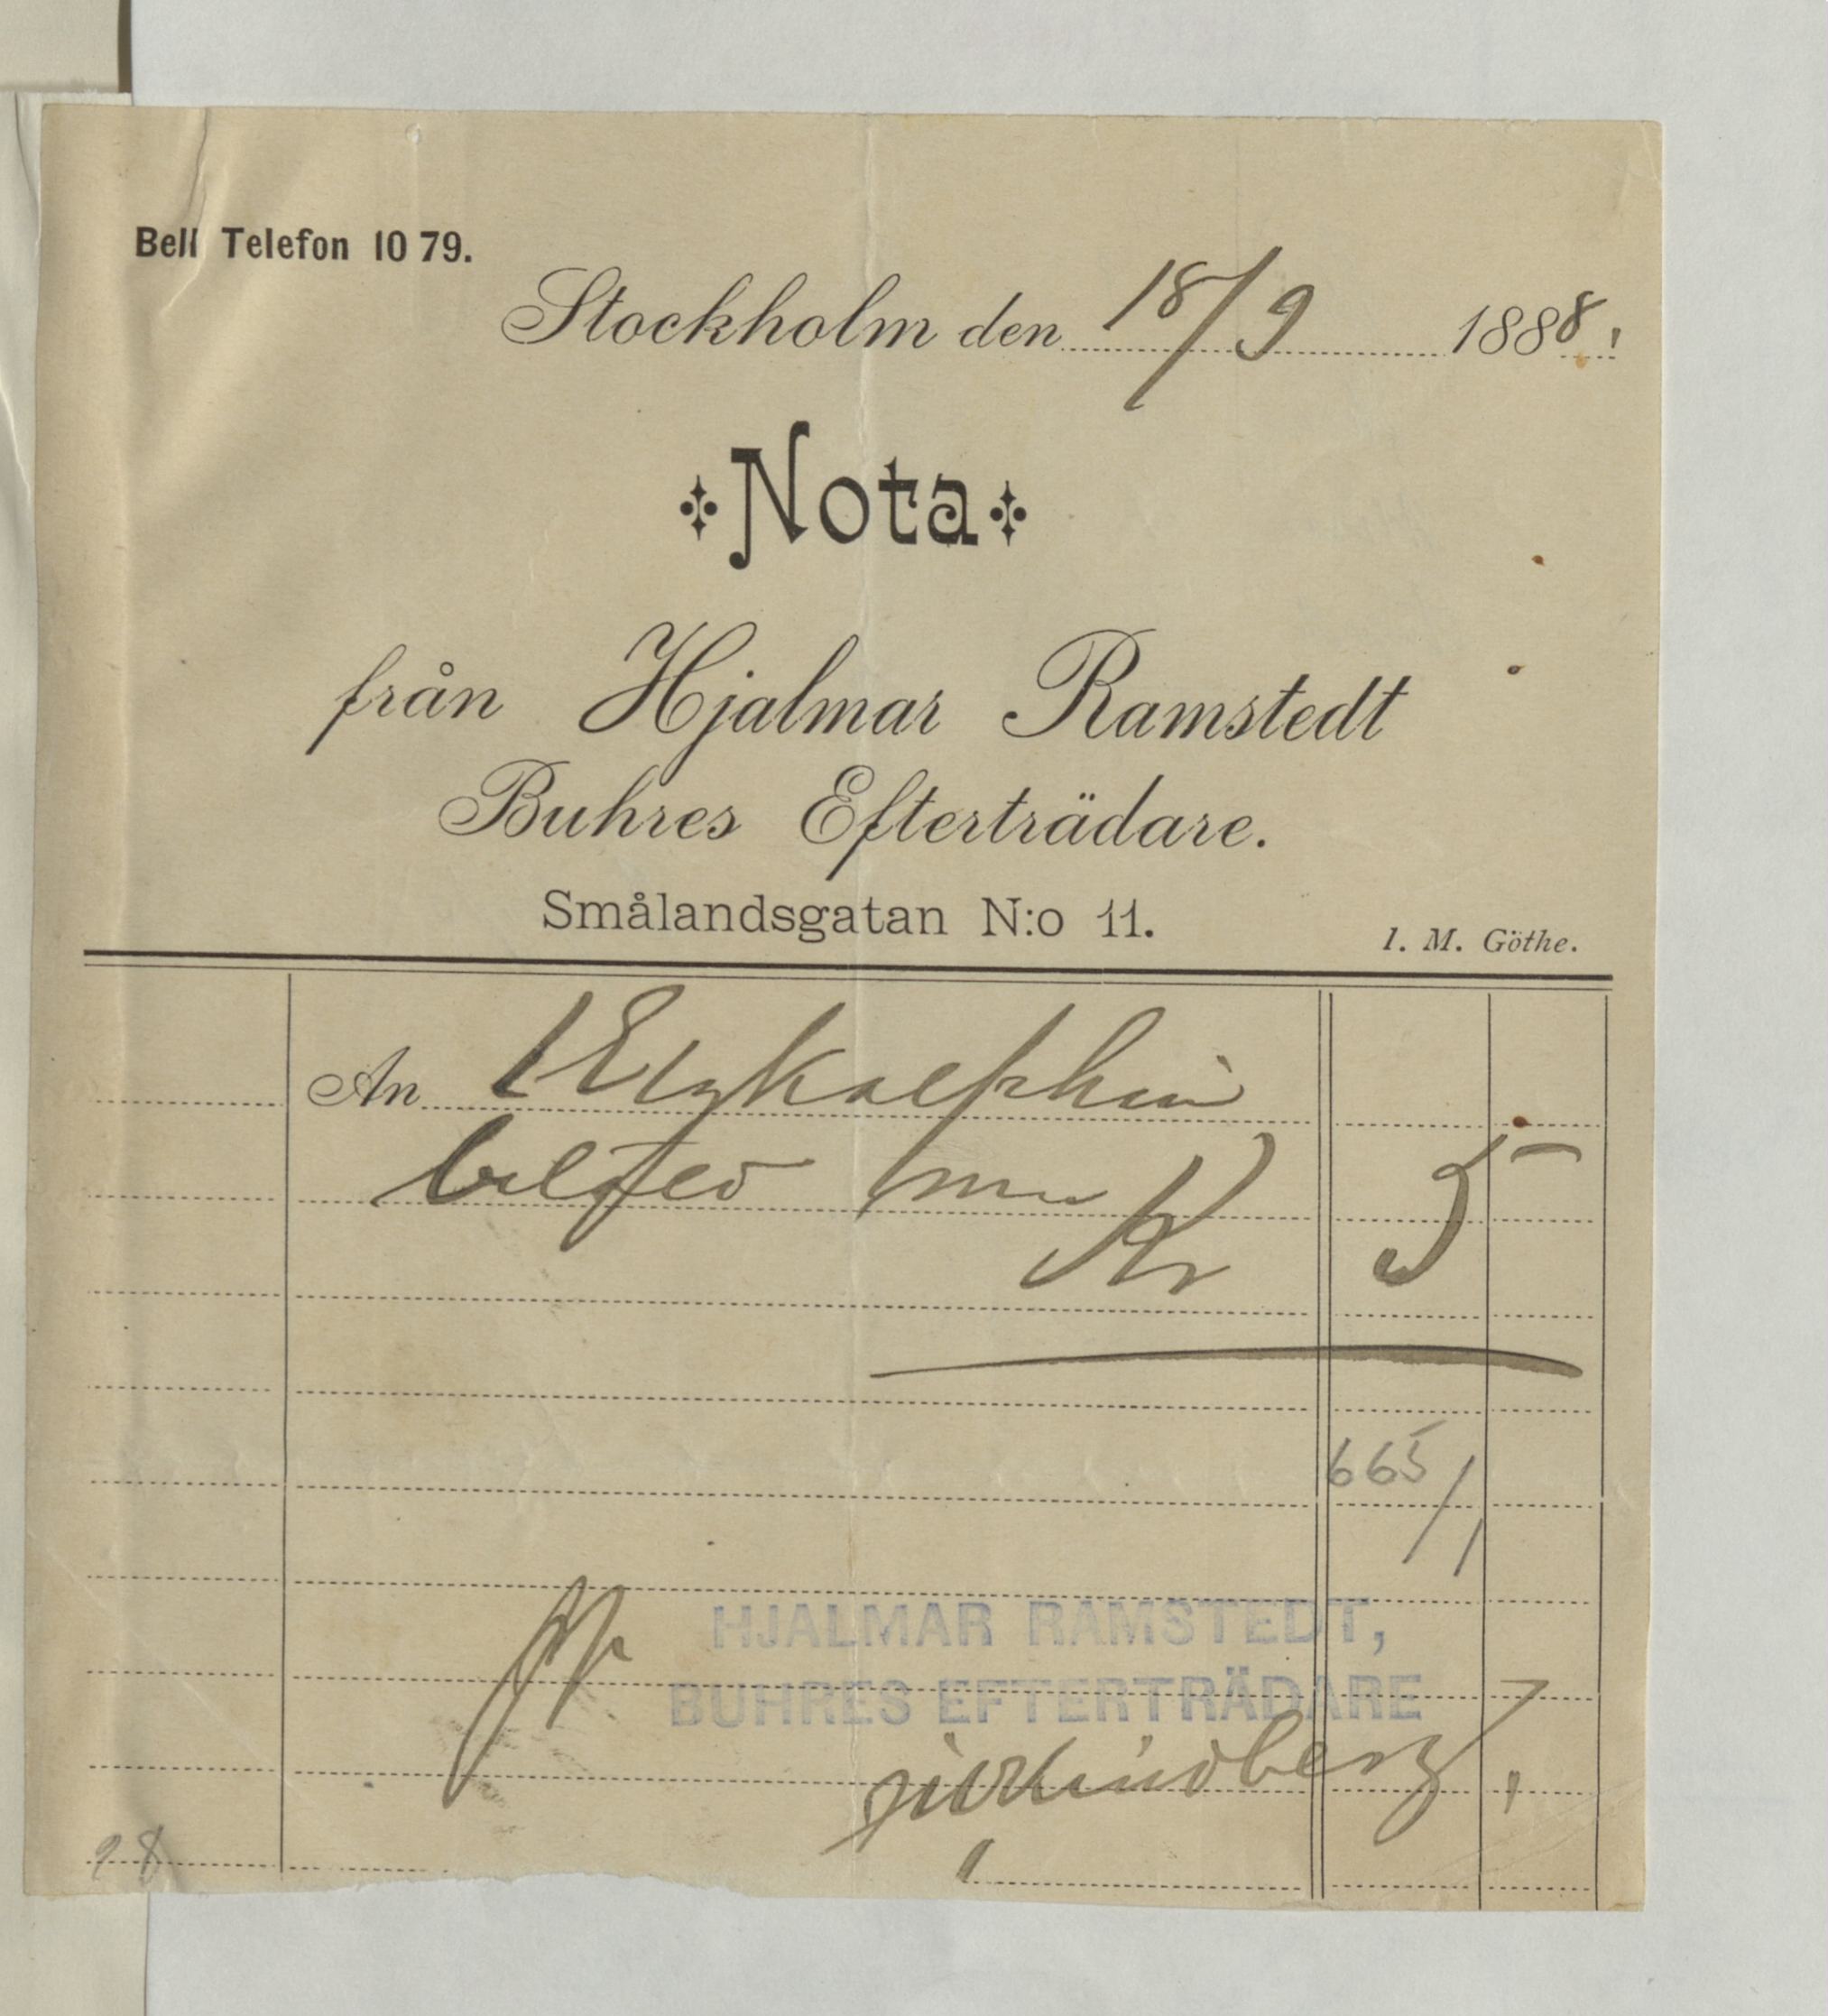 Bell Telefon 10 79.
Stockholm den 18/9 1888.
Nota
från Hjalmar Ramstedt
Buhres Efterträdare.
Smålandsgatan N:o 11.
1. M. Göthe.
An 1
Kr 5 –
665/1
HJALMAR RAMSTEDT,
BUHRES EFTERTRÄDARE
Lindberg
98